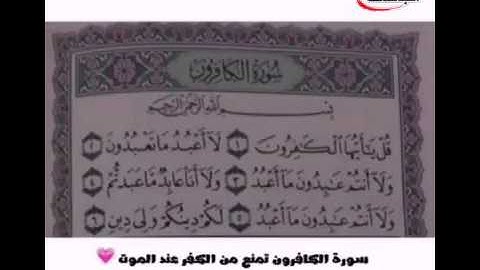 سورة الكافرون
بسم الله الرحمن الرحيم
قُلْ يَٰٓأَيُّهَا ٱلْكَٰفِرُونَ ١ لَآ أَعْبُدُ مَا تَعْبُدُونَ ٢
وَلَآ أَنتُمْ عَٰبِدُونَ مَآ أَعْبُدُ ٣ وَلَآ أَنَا۠ عَابِدٌ مَّا عَبَدتُّمْ ٤
وَلَآ أَنتُمْ عَٰبِدُونَ مَآ أَعْبُدُ ٥ لَكُمْ دِينُكُمْ وَلِىَ دِينِ ٦
سورة الكافرون تمنع من الكفر عند الموت